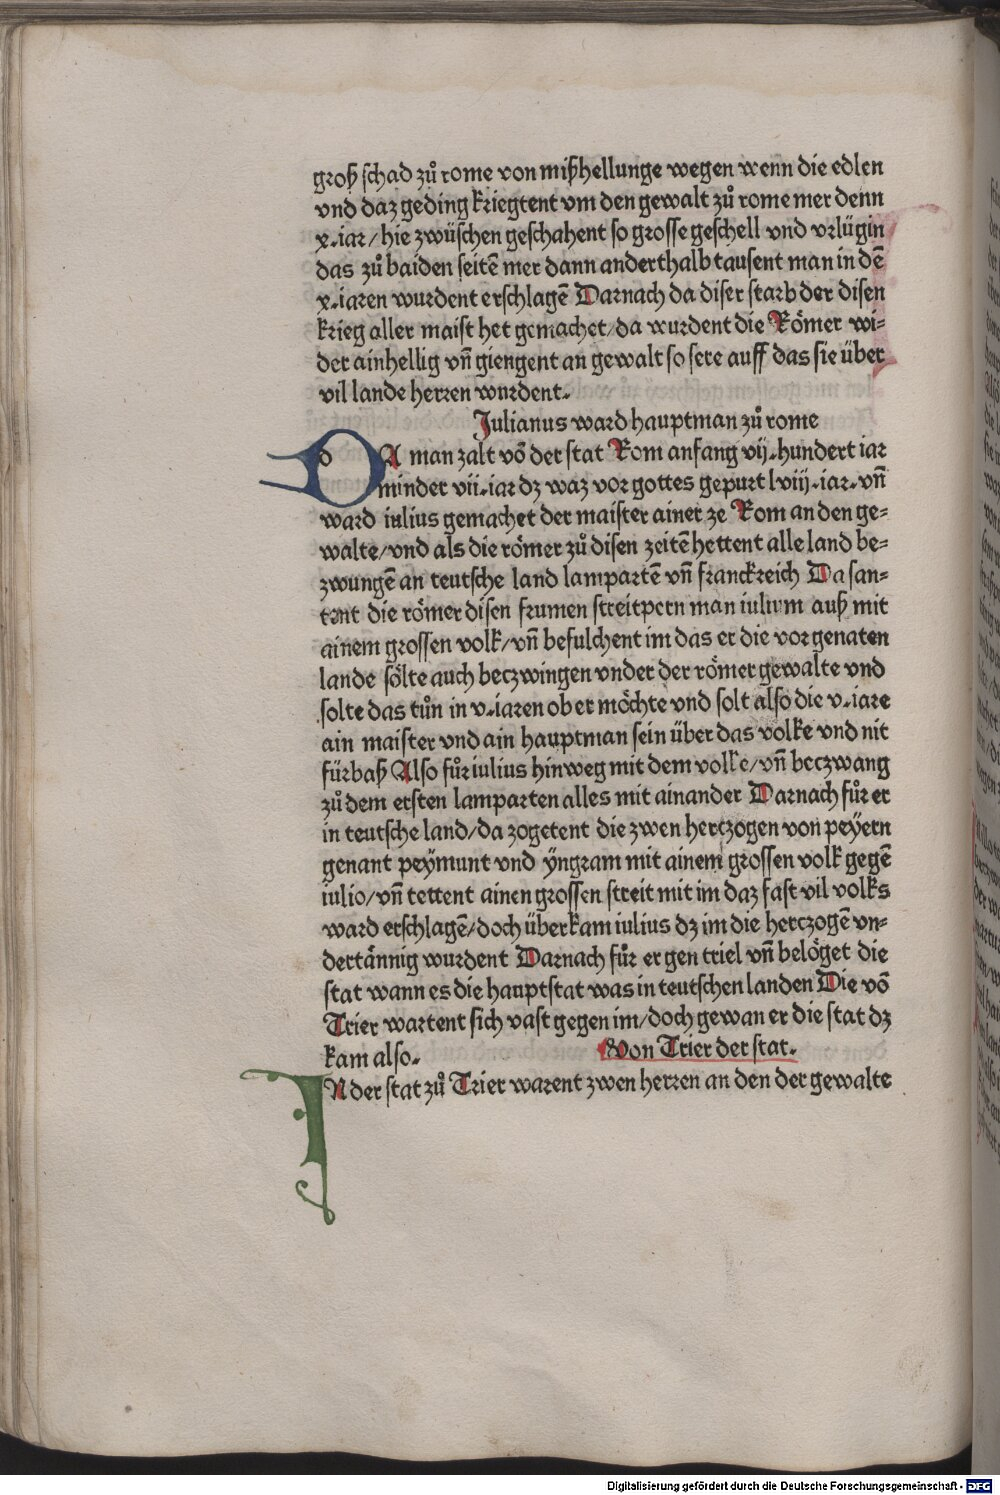 groß schad zů rome von mißhellunge wegen wenn die edlen
vnd daz geding kriegtent vm den gewalt zů rome mer denn
x.iar/hie zwüschen geschahent so grosse geschell vnd vrlügin
das zů baiden seitē mer dann anderthalb tausent man in dē
x.iaren wurdent erschlagē Darnach da diser starb der disen
krieg aller maist het gemachet/da wurdent die Römer wi-
der ainhellig vn̄ giengent an gewalt so sere auff das sie über
vil lande herren wurdent.
Julianus ward hauptman zů rome
DA man zalt vō der stat Rom anfang vij.hundert iar
minder vii.iar dz waz vor gottes gepurt lviij.iar.vn̄
ward iulius gemachet der maister ainer ze Rom an den ge-
walte/vnd als die römer zů disen zeitē hettent alle land be-
zwungē an teutsche land lampartē vn̄ franckreich Da san-
tent die römer disen frumen streitpern man iulium auß mit
ainem grossen volk/vn̄ befulchent im das er die vorgenaten
lande sölte auch beczwingen vnder der römer gewalte vnd
solte das tůn in v.iaren ob er möchte vnd solt also die v.iare
ain maister vnd ain hauptman sein über das volke vnd nit
fürbaß Also fůr iulius hinweg mit dem volke/vn̄ beczwang
zů dem ersten lamparten alles mit ainander Darnach fůr er
in teutsche land/da zogetent die zwen hertzogen von peÿern
genant peÿmunt vnd ÿngram mit ainem grossen volk gegē
iulio/vn̄ tettent ainen grossen streit mit im daz fast vil volks
ward erschlagē/doch überkam iulius dz im die herczogē vn-
dertännig wurdent Darnach fůr er gen triel vn̄ belöget die
stat wann es die hauptstat was in teutschen landen Die vō
Trier wartent sich vast gegen im/doch gewan er die stat dz
kam also.
Von Trier der stat.
IN der stat zů Trier warent zwen herren an den der gewalte
Digitalisierung gefördert durch die Deutsche Forschungsgemeinschaft - DFG